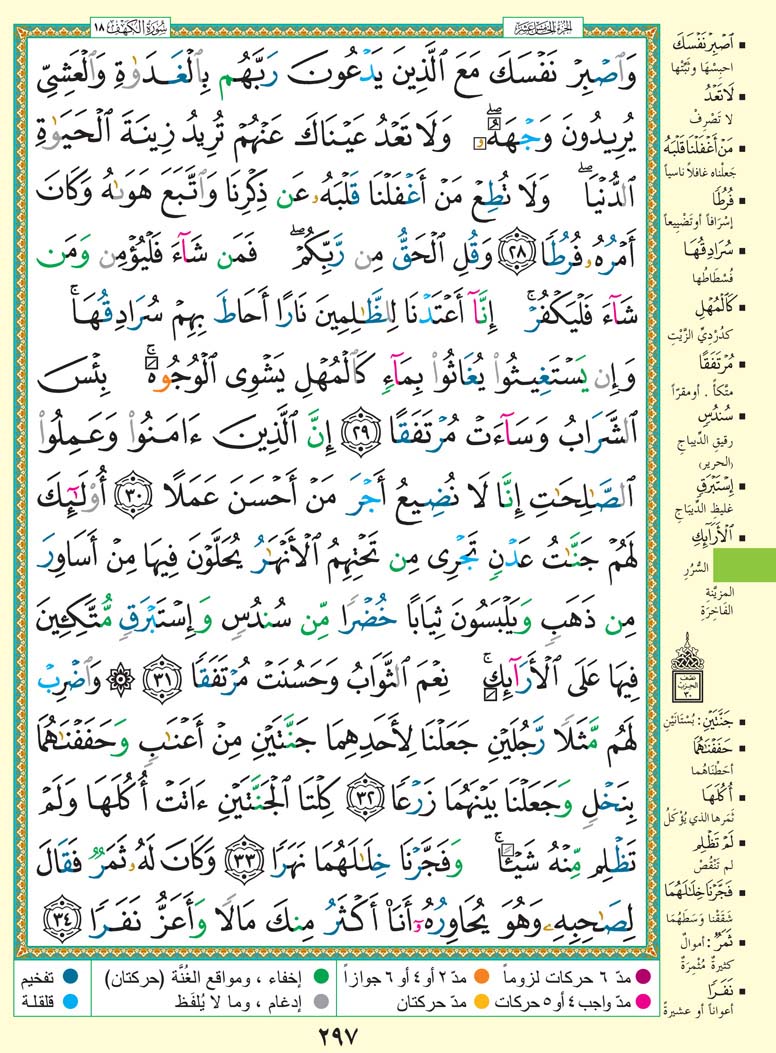 الجزء الخامس عشر
سورة الكهف ١٨
وَٱصۡبِرۡ نَفۡسَكَ مَعَ ٱلَّذِينَ يَدۡعُونَ رَبَّهُم بِٱلۡغَدَوٰةِ وَٱلۡعَشِيِّ
يُرِيدُونَ وَجۡهَهُۥۖ وَلَا تَعۡدُ عَيۡنَاكَ عَنۡهُمۡ تُرِيدُ زِينَةَ ٱلۡحَيَوٰةِ
ٱلدُّنۡيَاۖ وَلَا تُطِعۡ مَنۡ أَغۡفَلۡنَا قَلۡبَهُۥ عَن ذِكۡرِنَا وَٱتَّبَعَ هَوَىٰهُ وَكَانَ
أَمۡرُهُۥ فُرُطٗا ٢٨ وَقُلِ ٱلۡحَقُّ مِن رَّبِّكُمۡۖ فَمَن شَآءَ فَلۡيُؤۡمِن وَمَن
شَآءَ فَلۡيَكۡفُرۡۚ إِنَّآ أَعۡتَدۡنَا لِلظَّٰلِمِينَ نَارًا أَحَاطَ بِهِمۡ سُرَادِقُهَاۚ
وَإِن يَسۡتَغِيثُواْ يُغَاثُواْ بِمَآءٖ كَٱلۡمُهۡلِ يَشۡوِي ٱلۡوُجُوهَۚ بِئۡسَ
ٱلشَّرَابُ وَسَآءَتۡ مُرۡتَفَقًا ٢٩ إِنَّ ٱلَّذِينَ ءَامَنُواْ وَعَمِلُواْ
ٱلصَّٰلِحَٰتِ إِنَّا لَا نُضِيعُ أَجۡرَ مَنۡ أَحۡسَنَ عَمَلًا ٣٠ أُوْلَٰٓئِكَ
لَهُمۡ جَنَّٰتُ عَدۡنٖ تَجۡرِي مِن تَحۡتِهِمُ ٱلۡأَنۡهَٰرُ يُحَلَّوۡنَ فِيهَا مِنۡ أَسَاوِرَ
مِن ذَهَبٖ وَيَلۡبَسُونَ ثِيَابًا خُضۡرٗا مِّن سُندُسٖ وَإِسۡتَبۡرَقٖ مُّتَّكِـِٔينَ
فِيهَا عَلَى ٱلۡأَرَآئِكِۚ نِعۡمَ ٱلثَّوَابُ وَحَسُنَتۡ مُرۡتَفَقٗا ٣١ ۞ وَٱضۡرِبۡ
لَهُم مَّثَلٗا رَّجُلَيۡنِ جَعَلۡنَا لِأَحَدِهِمَا جَنَّتَيۡنِ مِنۡ أَعۡنَٰبٖ وَحَفَفۡنَٰهُمَا
بِنَخۡلٖ وَجَعَلۡنَا بَيۡنَهُمَا زَرۡعٗا ٣٢ كِلۡتَا ٱلۡجَنَّتَيۡنِ ءَاتَتۡ أُكُلَهَا وَلَمۡ
تَظۡلِم مِّنۡهُ شَيۡـٔٗاۚ وَفَجَّرۡنَا خِلَٰلَهُمَا نَهَرٗا ٣٣ وَكَانَ لَهُۥ ثَمَرٞ فَقَالَ
لِصَٰحِبِهِۦ وَهُوَ يُحَاوِرُهُۥٓ أَنَا۠ أَكۡثَرُ مِنكَ مَالٗا وَأَعَزُّ نَفَرٗا ٣٤
اصْبِرْ نَفْسَكَ
احبِسْهَا وثبِّتْها
لَا تَعْدُ
لا تَصْرِفْ
مَنْ أَغْفَلْنَا قَلْبَهُ
جَعلْناه غافلاً ناسياً
فُرُطًا
إسْرَافاً أو تَضْيِيعاً
سُرَادِقُهَا
فُسْطَاطُها
كَالْمُهْلِ
كدُرْدِيِّ الزَّيْتِ
مُرْتَفَقًا
متّكأً . أو مقرّاً
سُنْدُسٍ
رقيقِ الدِّيباجِ
(الحرير)
إِسْتَبْرَقٍ
غليظِ الدِّيبَاجِ
الْأَرَائِكِ
السُّرُرِ
المزيَّنةِ
الفَاخِرَةِ
نصف
الحزب
٣٠
جَنَّتَيْنِ : بُسْتَانَيْنِ
حَفَفْنَاهُمَا
أحَطْنَاهُما
أُكُلَهَا
ثمَرها الذي يُؤْكَلُ
لَمْ تَظْلِمْ
لم تَنْقُصْ
فَجَّرْنَا خِلَالَهُمَا
شَقَقْنا وَسَطَهُما
ثَمَرٌ : أموالٌ
كثيرةٌ مُثْمِرَةٌ
نَفَرًا
أعواناً أو عشيرةً
مدّ ٦ حركات لزوماً
مدّ ٢ أو ٤ أو ٦ جوازاً
إخفاء ، ومواقع الغُنَّة (حركتان)
تفخيم
مدّ واجب ٤ أو ٥ حركات
مدّ حركتان
إدغام ، وما لا يُلفَظ
قلقلة
٢٩٧